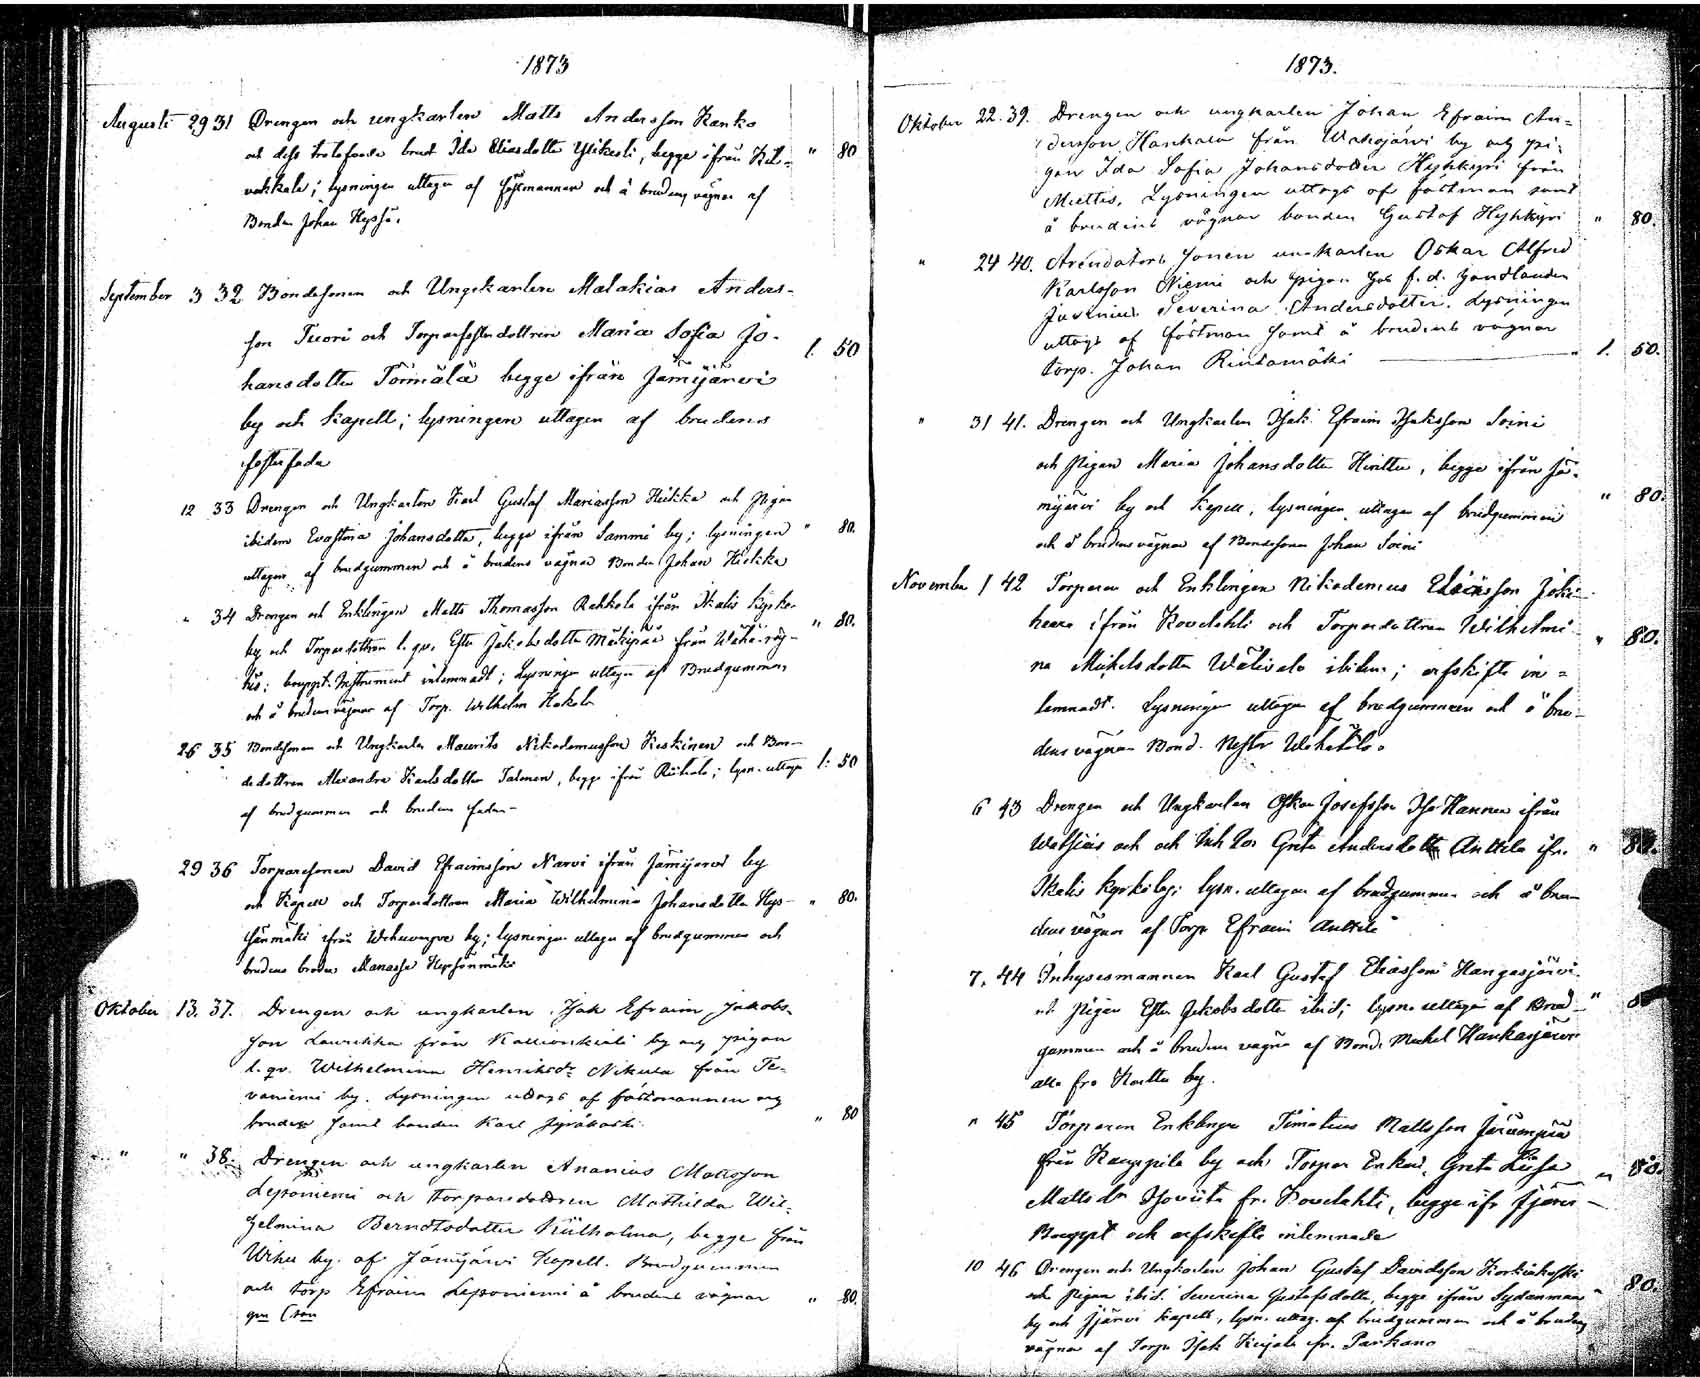 1873
Augusti 29 31 Drengen och ungkarlen Matts Andersson Kanko
och dess trolofvade brud Ida Eliasdotter Ylikesti, begge ifrån " 80
vakkala; lysningen uttagen af fästmannen och å brudens vägnar af
Bonden Johan Heyssä.
September 3 32 Bondesonen och Ungkarlen Malakias Anders-
son Tuori och Torparefosterdottren Maria Sofia Jo-
hansdotter Törmälä begge ifrån Jämijärvi 1. 50
by och Kapell; lysningen uttagen af brudens
fosterfader
12 33 Drengen och Ungkarlen Karl Gustaf Mariasson Heikka och pigan
ibidem Evastina Johansdotter, begge ifrån Sammi by; lysningen " 80.
uttagen af brudgummen och å brudens vägnar Bonden Johan Heikka
" 34 Drengen och Enklingen Matts Thomasson Rahkola ifrån Ikalis Kyrko-
by och Torparedottren l. qv. Ester Jakobsdotter Mäkipää från " 80.
bouppt. Instrument inlemnadt; Lysningen uttagen af Brudgummen
och å brudens vägnar af Torp. Wilhelm Hakala
26 35 Bondesonen och Ungkarlen Maurits Nikodemusson Keskinen och Bon-
dedottren Alexandra Karlsdotter Salonen, begge ifrån Riihola; lysn. uttagen 1: 50
af brudgummen och brudens fader-
29 36 Torparesonen David Efraimsson Narvi ifrån Jämijärvi by
och Kapell och Torparedottren Maria Wilhelmina Johansdotter Heys- " 80.
sänmäki ifrån by; lysningen uttagen af brudgummen och
brudens broder Manasse Heyssänmäki
Oktober 13. 37. Drengen och ungkarlen Isak Efraim Jakobs-
son Laurikka från by och pigan
l. qv. Wilhelmina Henriksdr Nikula från Te-
vaniemi by. Lysningen uttogs af fästmannen och
bruden samt bonden Karl " 80
" " 38. Drengen och ungkarlen Ananias Matsson
Leponiemi och torparedottren Mathilda Wil-
helmina Berndtsdotter Kiilholma, begge från
Wihu by. af Jämijärvi Kapell. Brudgummen
och torp Efraim Leponiemi å brudens vägnar " 80.
1873.
Oktober 22. 39. Drengen och ungkarlen Johan Efraim An-
dersson Hankala från by och pi-
gan Ida Sofia Johansdotter Hyhkyri från
Miettis, Lysningen uttogs af fästman samt
å brudens vägnar bonden Gustaf Hyhkyri " 80.
" 24 40. Arendators sonen ungkarlen Oskar Alfred
Karlsson Niemi och pigan hos f. d. handlanden
Juvenius Severina Andersdotter. Lysningen
uttogs af fästman samt å brudens vägnar
torp. Johan Rintamäki " 1. 50.
" 31 41. Drengen och Ungkarlen Isak Efraim Isaksson Soini
och pigan Maria Johansdotter Hirittu, begge ifrån Jä-
mijärvi by och Kapell, lysningen uttagen af brudgummen " 80.
och å brudens vägnar af Bondesonen Johan Soini
November 1 42 Torparen och Enklingen Nikodemus Eliasson Joki-
ifrån Kovelahti och Torparedottren Wilhelmi-
na Mickelsdotter Wälivalo ibidem; arfskifte in- " 80.
lemnadt. Lysningen uttagen af brudgummen och å bru-
dens vägnar Bond. Nestor
6 43 Drengen och Ungkarlen Oskar Josefsson Iso Hannu ifrån
och och Greta Andersdotter Anttila ifr. " 80.
Ikalis kyrkoby; lysn. uttagen af brudgummen och å bru-
dens vägnar af Torp Efraim Anttila
7. 44 Inhysesmannen Karl Gustaf Eliasson Hangasjärvi
och pigan Ester Jakobsdotter ibid; lysn. uttagen af Brud- " 80
gummen och å brudens vägnar af Bond. Mickel Hankasjärvi
alla fr. by.
" 45 Torparen Enklingen Timoteus Mattsson Järvenpää
från Kauppila by och Torpar Enkan Greta Lisa " 80.
Matts dr fr. Kovelahti, begge ifr Jjärvi
Bouppt och arfskifte inlemnade
10 46 Drengen och Ungkarlen Johan Gustaf Davidsson Korkiakoski
och pigan ibid. Severina Gustafsdotter, begge ifrån Sydänmaa " 80.
by och Jjärvi Kapell, lysn. uttag. af brudgummen och å brudens
vägnar af Torp. Isak Kujala fr. Parkano